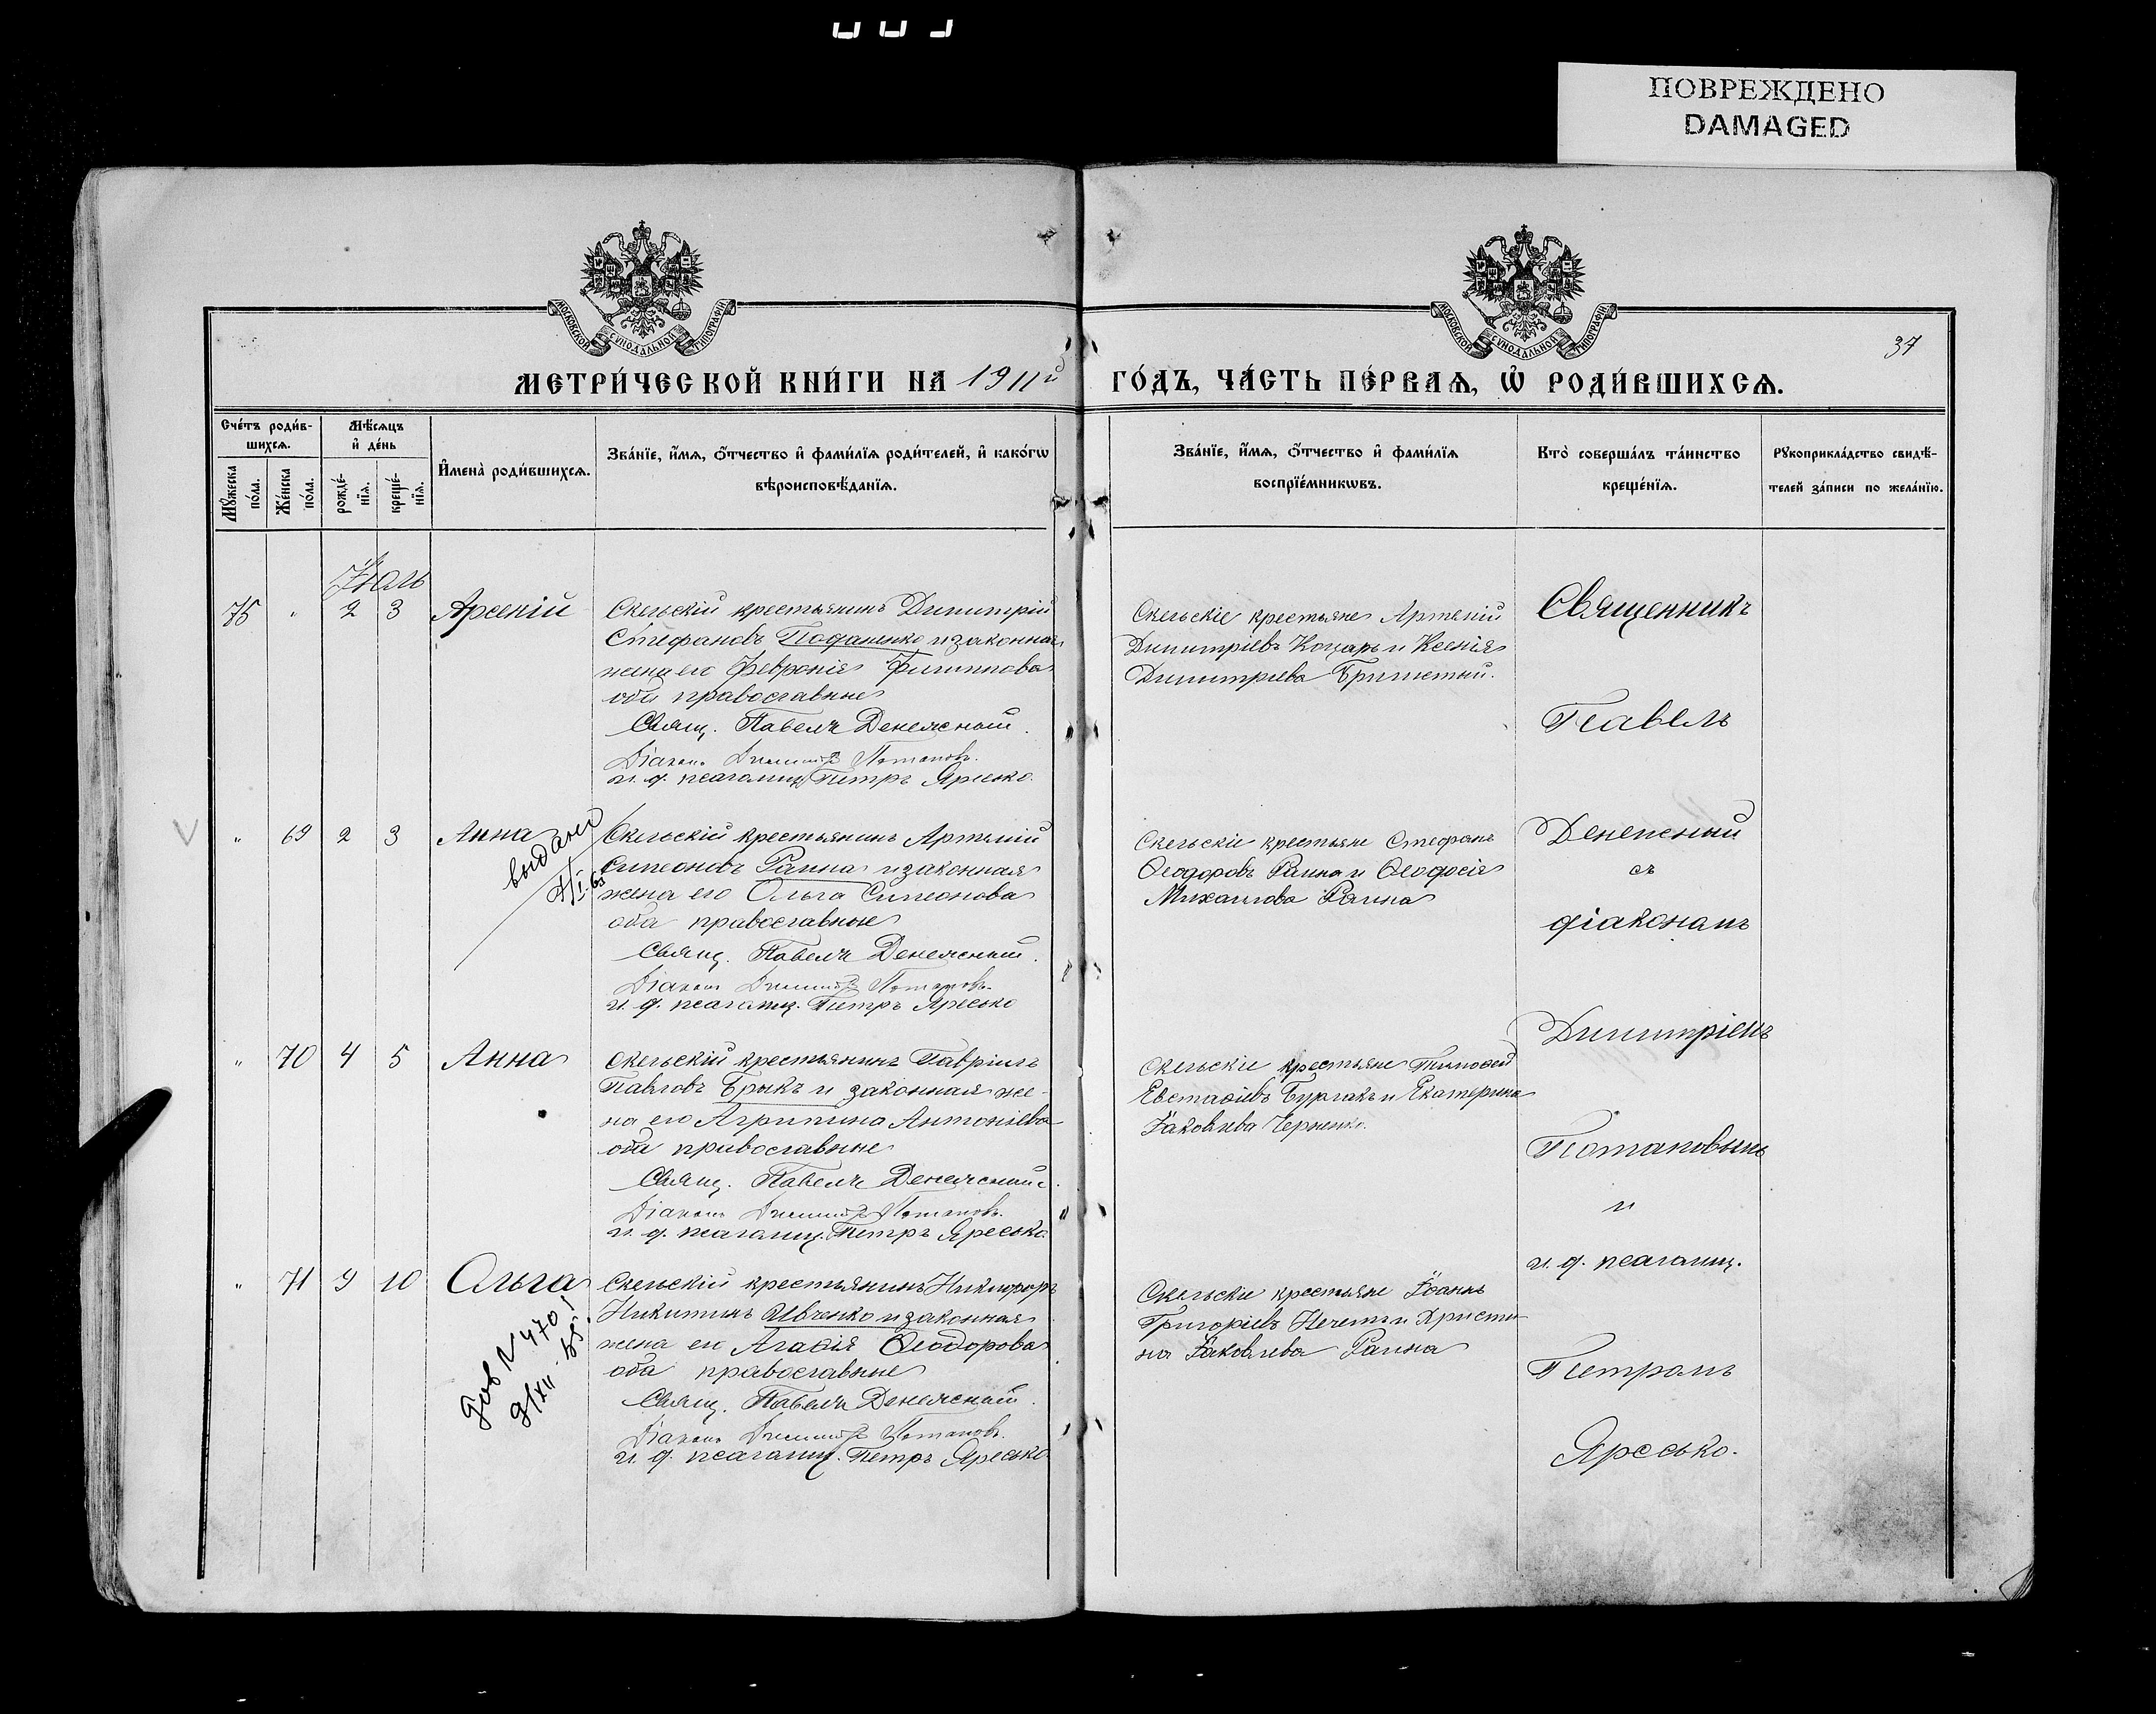 ПОВРЕЖДЕНО
DAMAGED
МОСКОВСКОЙ СѴНОДАЛЬНОЙ ТИПОГРАФІИ
МОСКОВСКОЙ СѴНОДАЛЬНОЙ ТИПОГРАФІИ
37
МЕТРИ́ЧЕСКОЙ КНИ́ГИ НА 1911й ГО́ДЪ, ЧА́СТЬ ПЕ́РВАѦ, Ѡ҆ РОДИ́ВШИХСѦ.
Сче́тъ роди́в-
шихсѧ.
Мꙋ́жеска по́ла.
Же́нска по́ла.
Мѣ́сѧцъ
и҆ де́нь
рожде́-
нїѧ.
креще́-
нїѧ.
И҆мена̀ роди́вшихсѧ.
Зва́нїе, и҆́мѧ, ѻ҆́тчество и҆ фами́лїѧ роди́телей, и҆ како́гѡ
вѣроисповѣ́данїѧ.
Зва́нїе, и҆́мѧ, ѻ҆́тчество и҆ фами́лїѧ
воспрїе́мникѡвъ.
Кто̀ соверша́лъ та́инство
креще́нїѧ.
Рꙋкоприкла́дство свидѣ́-
телей за́писи по жела́нїю.
Іюль
75 " 2 3 Арсеній
Скельскій крестьянинъ Димитрій
Стефановъ и законная
жена его Февронія Филиппова
оба православные
Свящ. Павелъ Денежный.
Діаконъ Димитрій Потаповъ.
и. д. псаломщ. Петръ Яресько.
Скельскіе крестьяне Артемій
Димитріевъ Коцарь и Ксенія
Димитріева
" 69 2 3 Анна
выдано
Скельскій крестьянинъ Артемій
Симеоновъ Рапна и законная
жена его Ольга Симеонова
оба православные
Свящ. Павелъ Денежный.
Діаконъ Димитрій Потаповъ.
и. д. псаломщ. Петръ Яресько
Скельскіе крестьяне Стефанъ
Ѳеодоровъ Рапна и Ѳеодосія
Михаилова Рапна
" 70 4 5 Анна
Скельскій крестьянинъ Гавріилъ
Павловъ Брыкъ и законная же-
на его Агрипина Антоніева
оба православные
Свящ. Павелъ Денежный.
Діаконъ Димитрій Потаповъ.
и. д. псаломщ. Петръ Яресько.
Скельскіе крестьяне Тимоѳей
Евстаѳіевъ и Екатерина
Іаковлева Черненко.
" 71 9 10 Ольга
дов N 470
Скельскій крестьянинъ Никифоръ
Никитинъ и законная
жена его Агаѳія Ѳеодорова
оба православные
Свящ. Павелъ Денежный.
Діаконъ Димитрій Потаповъ.
и. д. псаломщ. Петръ Яресько.
Скельскіе крестьяне Іоаннъ
Григоріевъ и Христи-
на Іаковлева Рапна
Священникъ
Павелъ
Денежный
съ
діакономъ
Димитріемъ
Потаповымъ
и
и. д. псаломщ.
Петромъ
Яресько.